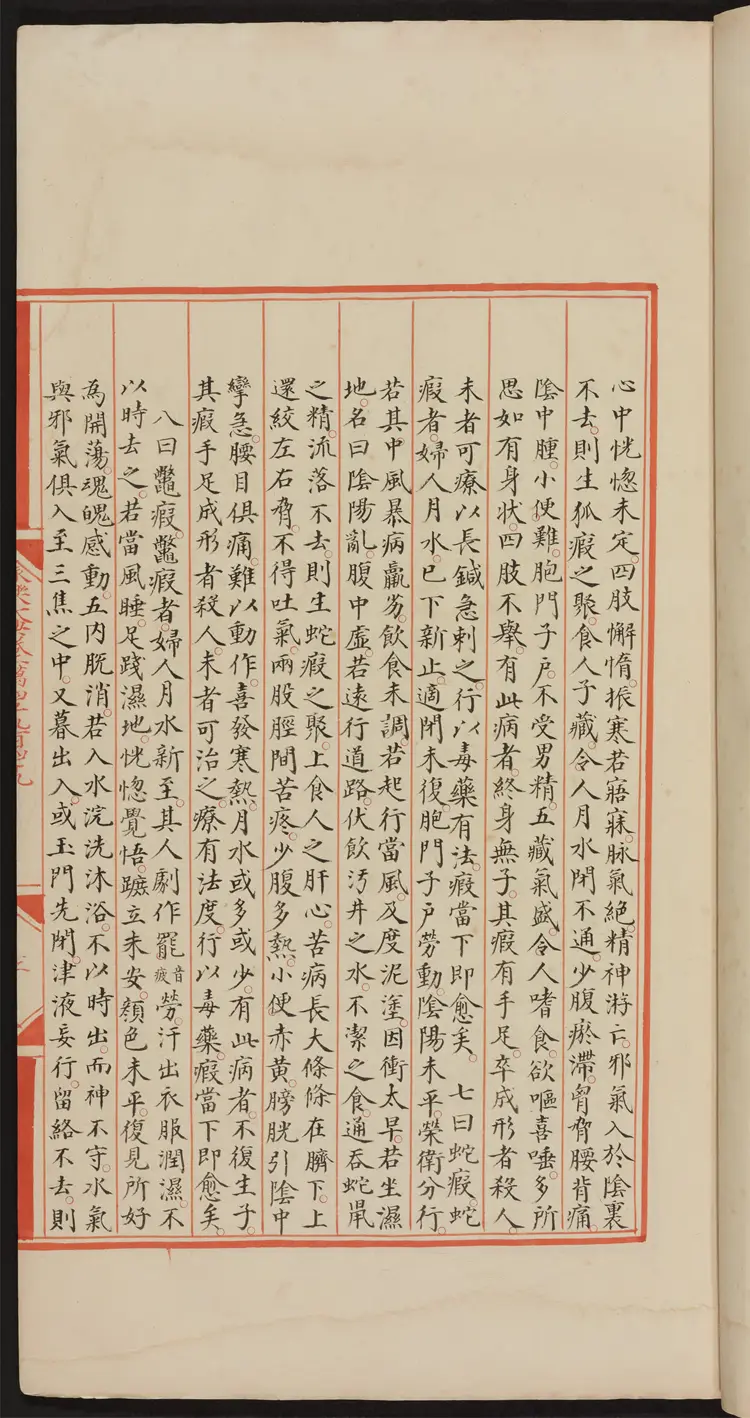 心中恍惚未定。四肢懈惰。振寒若寤寐。脉氣絶。精神游亡。邪氣入於陰裏
不去。則生狐瘕之聚。食人子藏。令人月水閉不通。少腹瘀滯。胷脅腰背痛。
陰中腫。小便難。胞門子户。不受男精。五藏氣盛。令人嗜食。欲嘔喜唾。多所
思如有身状。四肢不舉。有此病者。終身無子。其瘕有手足。卒成形者殺人。
未者可療。以長鍼急刺之。行以毒藥有法。瘕當下即愈矣。 七曰蛇瘕。蛇
瘕者。婦人月水。已下新止。適閉未復。胞門子户勞動。陰陽未平。榮衛分行。
若其中風暴病羸劣。飲食未調。若起行當風。及度泥塗。因衝太早。若坐濕
地。名曰陰陽亂。腹中虚。若遠行道路。伏飲汚井之水。不潔之食。通吞蛇鼠
之精。流落不去。則生蛇瘕之聚。上食人之肝心。苦病長大條條在臍下。上
還絞左右脅。不得吐氣。兩股脛間苦疼。少腹多熱。小便赤黄。膀胱引陰中
攣急。腰目俱痛。難以動作。喜發寒熱。月水或多或少。有此病者。不復生子。
其瘕手足成形者殺人。未者可治之。療有法度。行以毒藥。瘕當下即愈矣。
八曰鼈瘕。鼈瘕者。婦人月水新至。其人劇作罷音疲勞。汗出衣服潤濕。不
以時去之。若當風睡。足踐濕地。恍惚覺悟。蹠立未安。顔色未平。復見所好
為開蕩。魂魄感動。五内脱消。若入水浣洗沐浴。不以時出。而神不守。水氣
與邪氣俱入至三焦之中。又暮出入。或玉門先閉。津液妄行。留絡不去。則